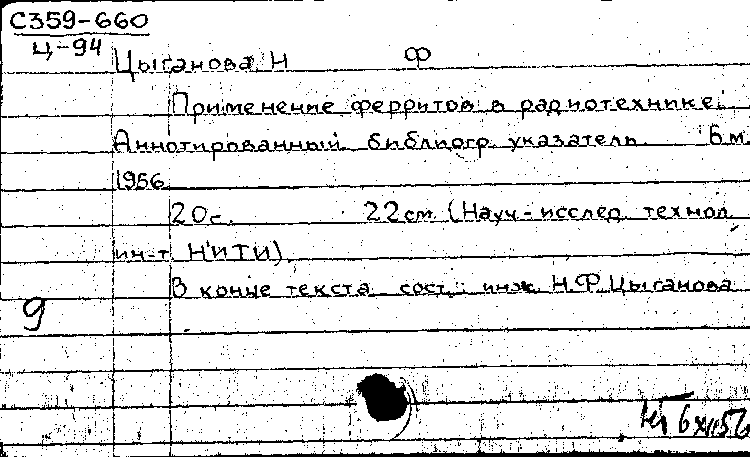 С359-660
Ц-94
Цыганова Н Ф
Применение ферритов в радиотехнике.
Аннотированный библиогр указатель. Б м.
1956
20с. 22см (Науч-исслед технол
ин-т НИТИ)
В конце текста сост.: инж Н.Ф.Цыганова
9
6 XII 56